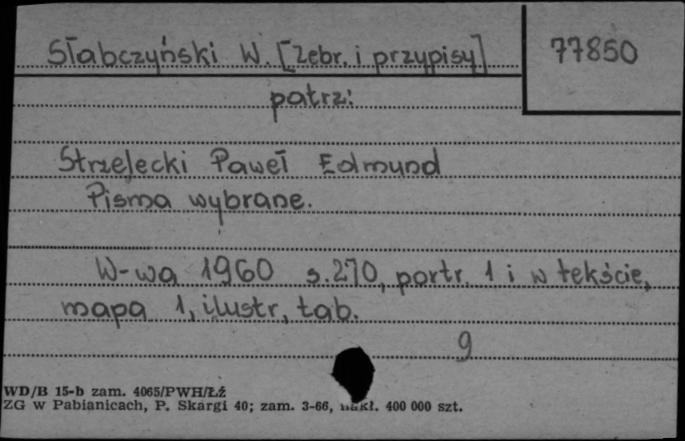 Słabczyński W. [Zebr. i przypisy]
77850
patrz:
Strzelecki Paweł Edmund
Pisma wybrane.
W-wa 1960 s. 270, portr. 1 i w tekście,
mapa 1, ilustr, tab.
9
WD/B 15-b zam. 4065/PWH/ŁŻ
ZG w Pabianicach, P. Skargi 40; zam. 3-66, nakł. 400 000 szt.